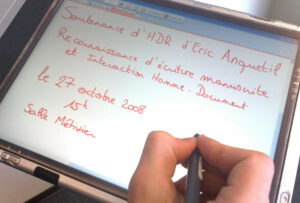 Soutenance d'HDR d'Eric Anquetil
Reconnaissance d'écriture manuscrite
et Interaction Homme-Document
le 27 octobre 2008
15h
Salle Métivier